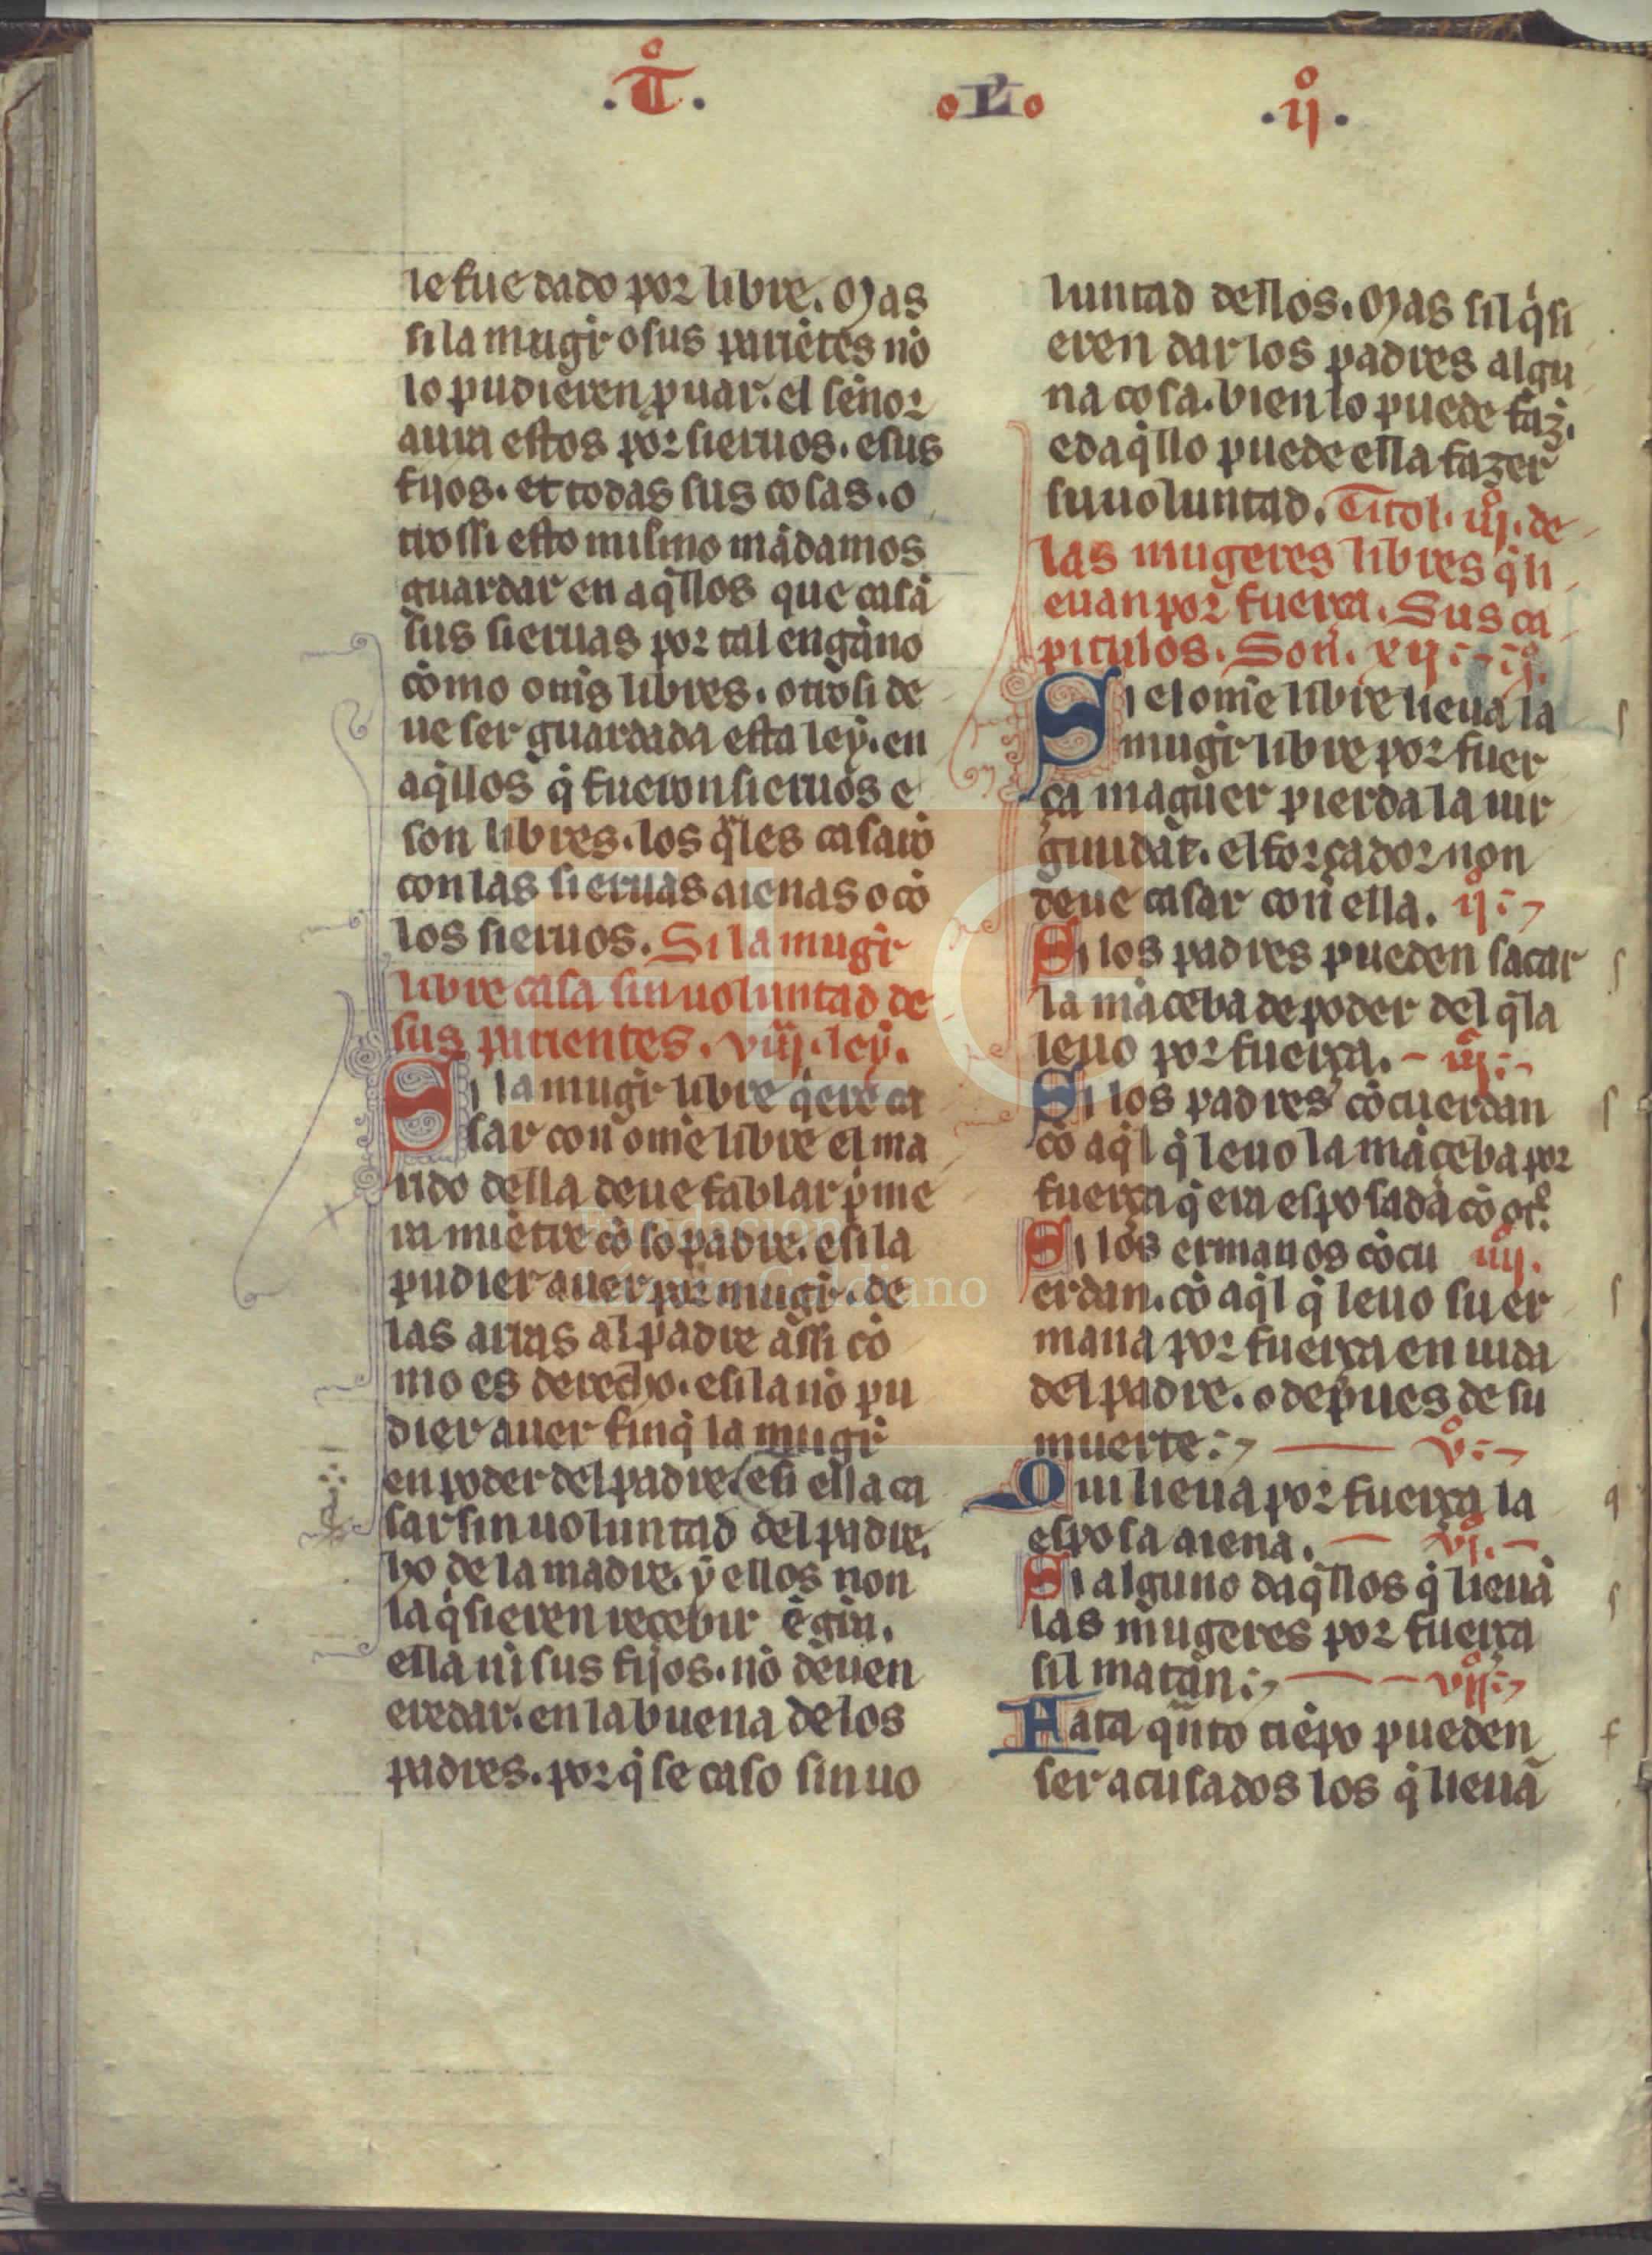 .T̊. L .ij̊.
le fue dado por libre. Mas
si la mugr̄ o sus pariētes nō
lo pudieren puar. el señor
aura estos por sieruos. e sus
fijos. et todas sus cosas. o
trossi esto mismo mādamos
guardar en aq̄llos que casā
sus sieruas por tal engāno
cōmo om̄s libres. otrosi de
ue ser guardada esta ley. en
aq̄llos q̄ fueron sieruos e
son libres. los q̄les casarō
con las sieruas aienas o cō
los sieruos. Si la mugr̄
libre casa sin uoluntad de
sus parientes. viij. ley.
Si la mugr̄ libre q̄ere ca
sar con om̄e libre el ma
rido della deue fablar p̄me
ra miētre cō so padre. e si la
pudier auer por mugr̄. de
las arras al padre assi cō
mo es derecho. e si la nō pu
dier auer finq̄ la mugr̄
en poder del padre. e si ella ca
sar sin uoluntad del padre.
ho de la madre. y ellos non
la q̄sieren reçebir ē gr̄a.
ella ni sus fijos. nō deuen
eredar. en la buena de los
padres. por q̄ se caso sin uo
luntad dellos. Mas sil q̄si
eren dar los padres algu
na cosa. bien lo puede faz̄.
e daq̄llo puede ella fazer
su uoluntad. Titol. iij̊. de
las mugeres libres q̄ li
euan por fuerça. Sus ca
pitulos. Son. xij. i̊.
Si el om̄e libre lieua la
mugr̄ libre por fuer
ça maguer pierda la uir
ginidat. el forçador non
deue casar con ella. ij̊.
Si los padres pueden sacar
la māceba de poder del q̄ la
leuo por fuerça. iij̊.
Si los padres cōcuerdan
cō aq̄l q̄ leuo la māçeba por
fuerça q̄ era esposada cō ot̊.
Si los ermanos cōcu iiij̊.
erdan. cō aq̄l q̄ leuo su er
mana por fuerça en uida
del padre. o depues de su
muerte. v̊.
Qui lieua por fuerça la
esposa aiena. vj̊.
Si alguno daq̄llos q̄ lieuā
las mugeres por fuerça
sil matan. vij̊.
Fata qn̄to tiēpo pueden
ser acusados los q̄ lieuā
Fundación
Lázaro Galdiano